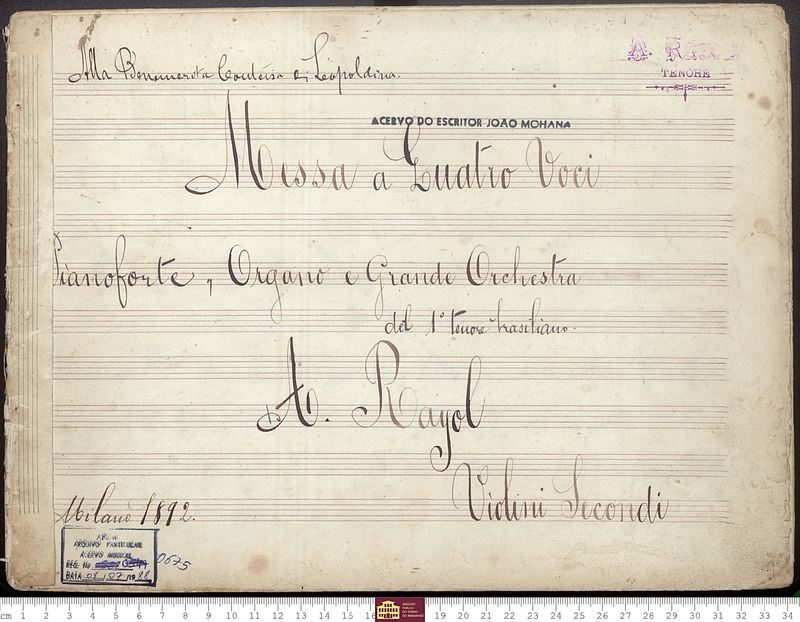 Alla Benemerita Contessa di Leopoldina.
A. R
TENORE
ACERVO DO ESCRITOR JOÃO MOHANA
Messa a Quatro Voci
Pianoforte, Organo e Grande Orchestra
del 1º tenore brasiliano.
A. Rayol
Violini Secondi
Milano 1892.
ARQUIVO PARTICULAR
ACERVO MUSICAL
REG. No 0675
DATA
cm 1 2 3 4 5 6 7 8 9 10 11 12 13 14 15 16 19 20 21 22 23 24 25 26 27 28 29 30 31 32 33 34